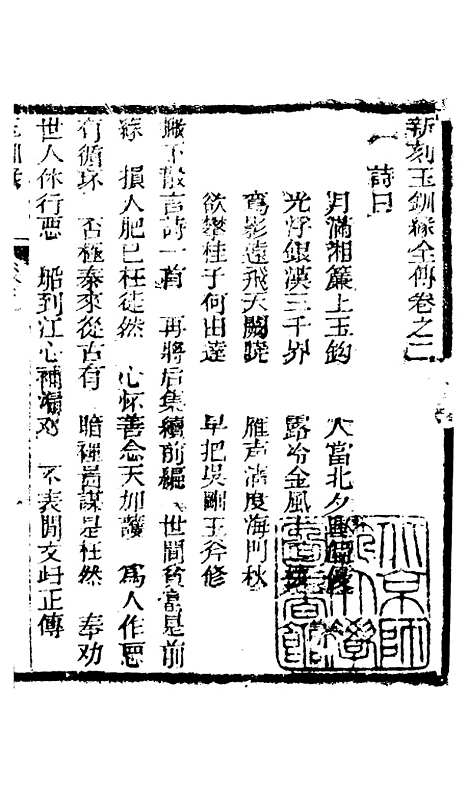 新刻玉釧緣全傳卷之二
詩曰
月滿湘簾上玉鈎 人當北夕興
光浮銀漢三千界 露冷金風十
鸞影遠飛天闕曉 雁声清度海門秋
欲攀桂子何由達 早把吳剛玉斧修
散言詩一首 再將后集續前編 世間貧富是前
緣 損人肥己枉徒然 心怀善念天加護 爲人作惡
有循环 否極泰來從古有 暗裡崗謀是枉然 奉劝
世人休行惡 船到江心補漏难 不表閒文歸正傳